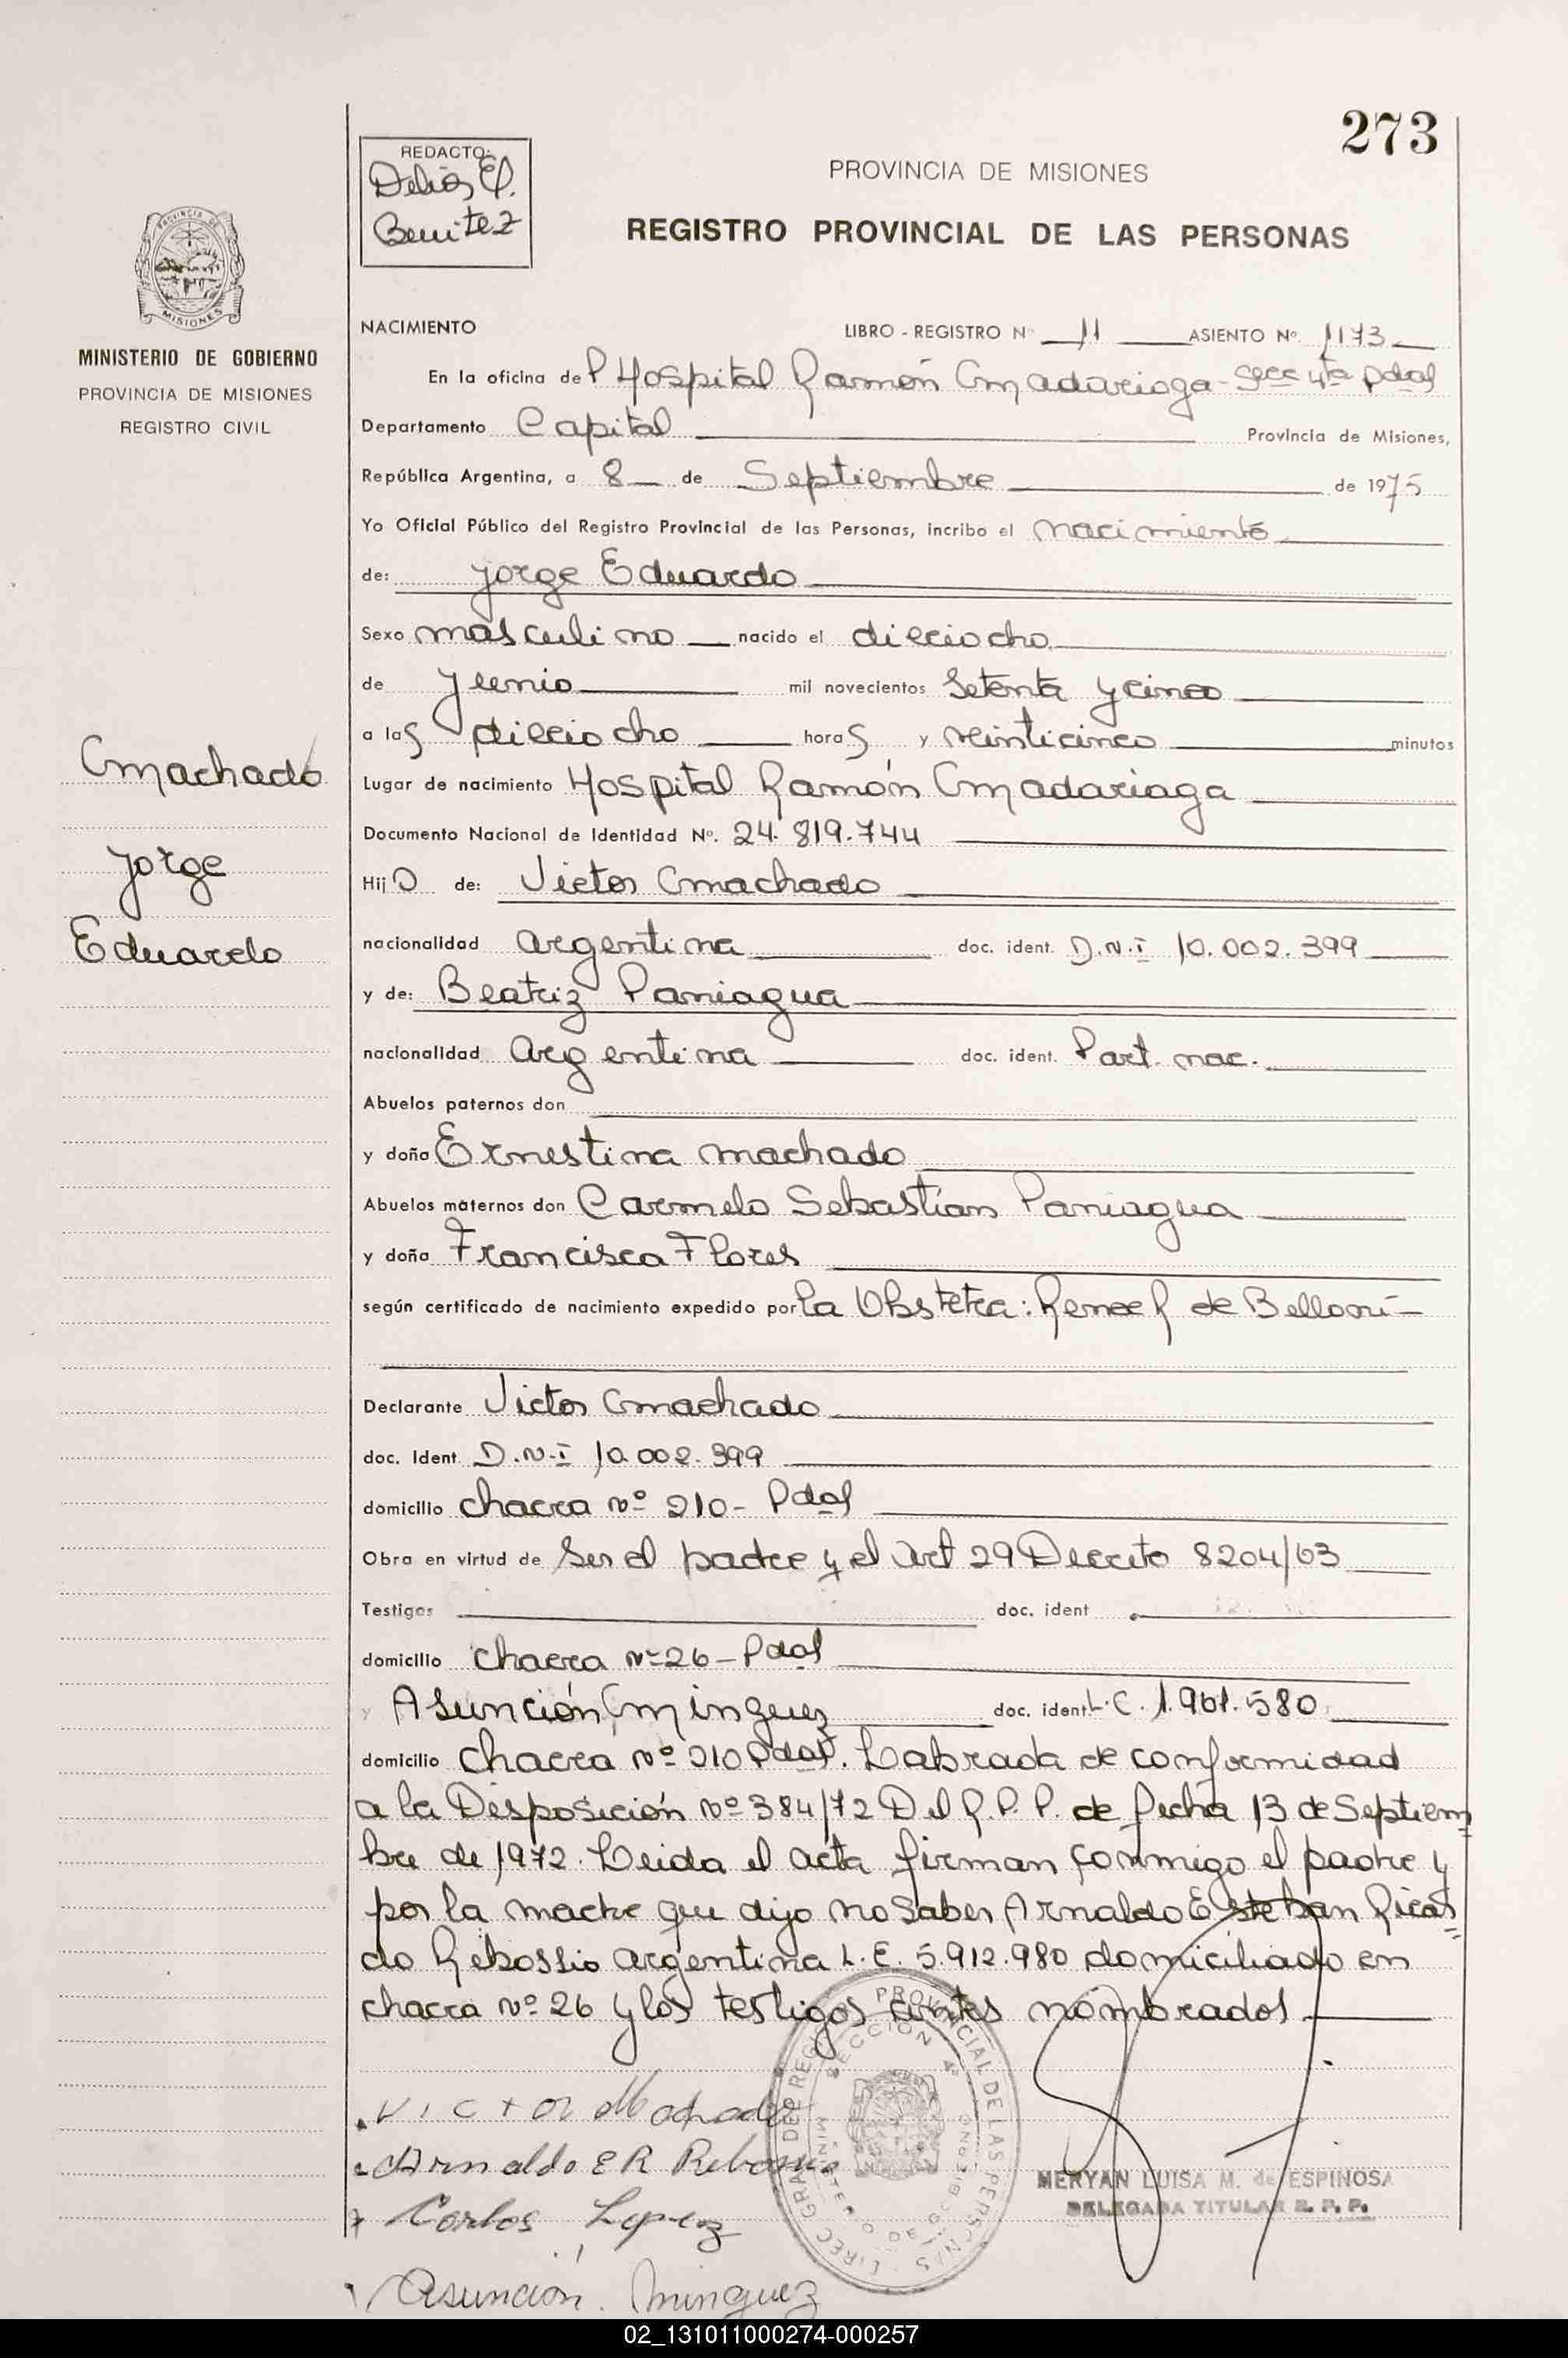 273
REDACTO:
Delia E.
Benitez
PROVINCIA DE MISIONES
REGISTRO PROVINCIAL DE LAS PERSONAS
PROVINCIA DE
MISIONES
MINISTERIO DE GOBIERNO
PROVINCIA DE MISIONES
REGISTRO CIVIL
NACIMIENTO LIBRO - REGISTRO Nº 11 ASIENTO Nº. 1173
En la oficina del Hospital Ramón Madariaga - Secc 4ta Pdas
Departamento Capital Provincia de Misiones,
República Argentina, a 8 de Septiembre de 1975
Yo Oficial Público del Registro Provincial de las Personas, incribo el nacimiento
de: Jorge Eduardo
Sexo masculino nacido el dieciocho
de Junio mil novecientos setenta y cinco
a las dieciocho horas y veinticinco minutos
Lugar de nacimiento Hospital Ramón Madariaga
Documento Nacional de Identidad Nº. 24.819.744
Hijo de: Victor Machado
nacionalidad argentina doc. ident. D.N.I 10.002.399
y de: Beatriz Paniagua
nacionalidad argentina doc. ident. Part. nac.
Abuelos paternos don
y doña Ernestina machado
Abuelos maternos don Carmelo Sebastián Paniagua
y doña Francisca Flores
según certificado de nacimiento expedido por la Obstetra: Renee R de Belloni
Declarante Victor Machado
doc. Ident D.N.I 10.002.399
domicilio chacra nº 210 - Pdas
Obra en virtud de ser el padre y el art 29 Decreto 8204/63
Testigos doc. ident
domicilio chacra nº 26 - Pdas
y Asunción Minguez doc. ident L.C. 1.961.580
domicilio chacra nº 210 Pdas. Labrada de conformidad
a la Disposición nº 384/72 Del R.P.P. de fecha 13 de Septiem
bre de 1972. Leida el acta firman conmigo el padre y
por la madre que dijo no saber Arnaldo Esteban Ricar
do Rebossio argentina L.E. 5.912.980 domiciliado en
chacra nº 26 y los testigos antes nombrados
Machado
Jorge
Eduardo
Victor Machado
Arnaldo E R Rebossio
Carlos Lopez
Asunción Minguez
MERYAN LUISA M. de ESPINOSA
DELEGADA TITULAR R. P. P.
02_131011000274-000257